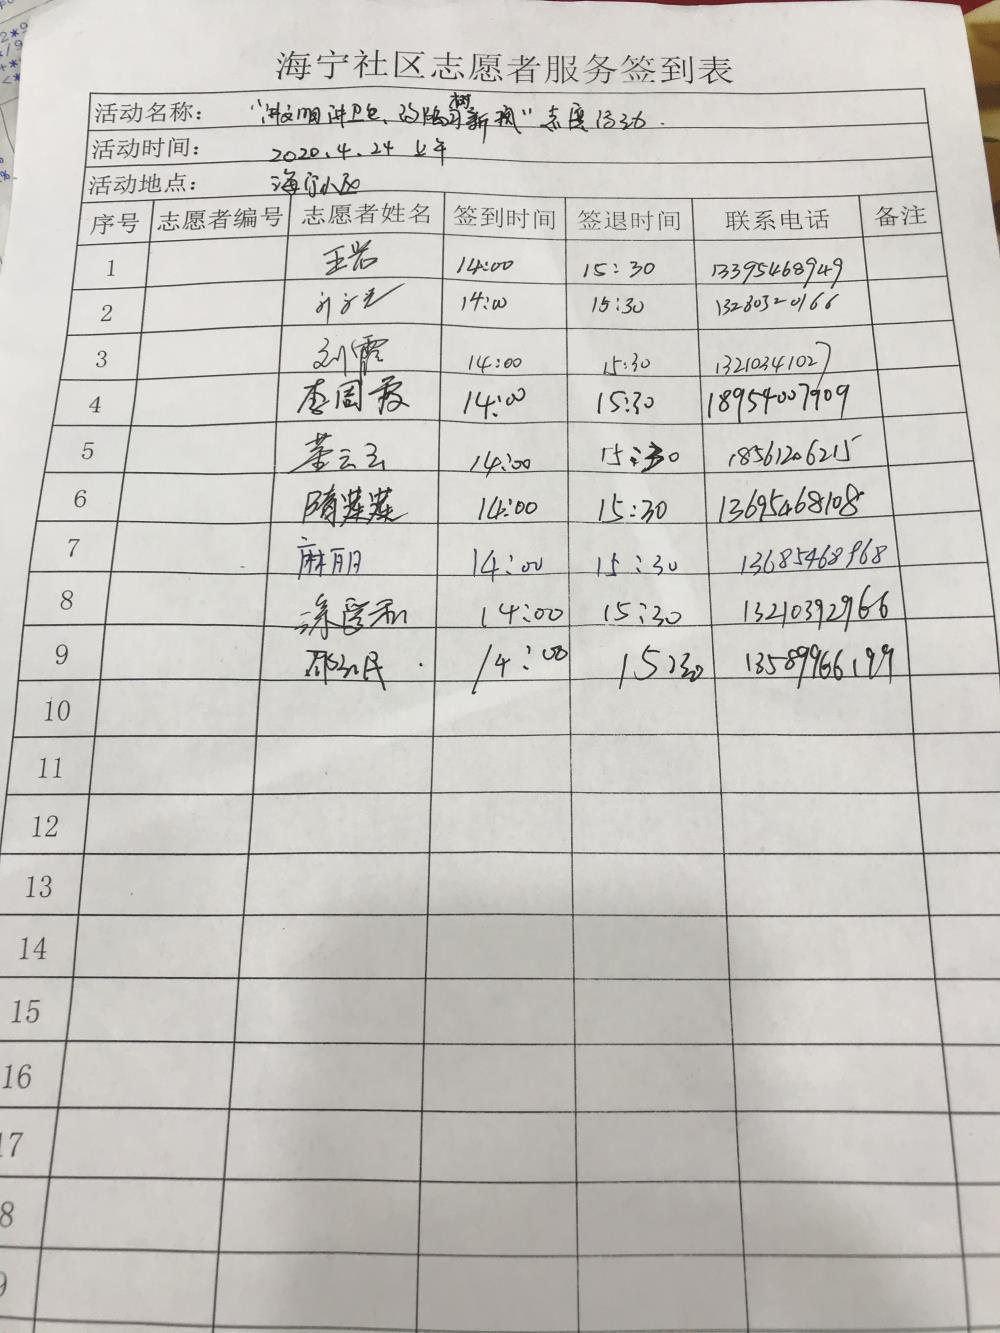 海宁社区志愿者服务签到表
活动名称： "讲文明讲卫生、改陋习树新风"志愿活动.
活动时间： 2020.4.24 上午
活动地点： 海宁小区
序号 志愿者编号 志愿者姓名 签到时间 签退时间 联系电话 备注
1 14:00 15:30 13395468949
2 14:00 15:30 13280320166
3 刘霞 14:00 15:30 13210341027
4 李国霞 14:00 15:30 18954007909
5 董云云 14:00 15:30 18561206215
6 隋莹莹 14:00 15:30 13695468108
7 麻丽 14:00 15:30 13685468968
8 14:00 15:30 13210392966
9 14:00 15:30 13589966199
10
11
12
13
14
15
16
17
8
9